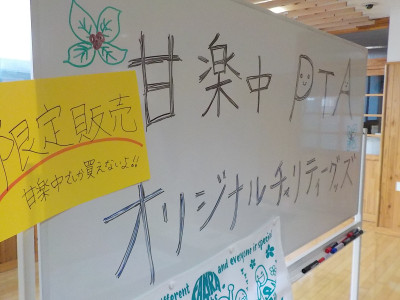 甘楽中 PTA
限定販売
甘楽中でしか買えないよ!!
オリジナルチャリティーグッズ
and everyone is special